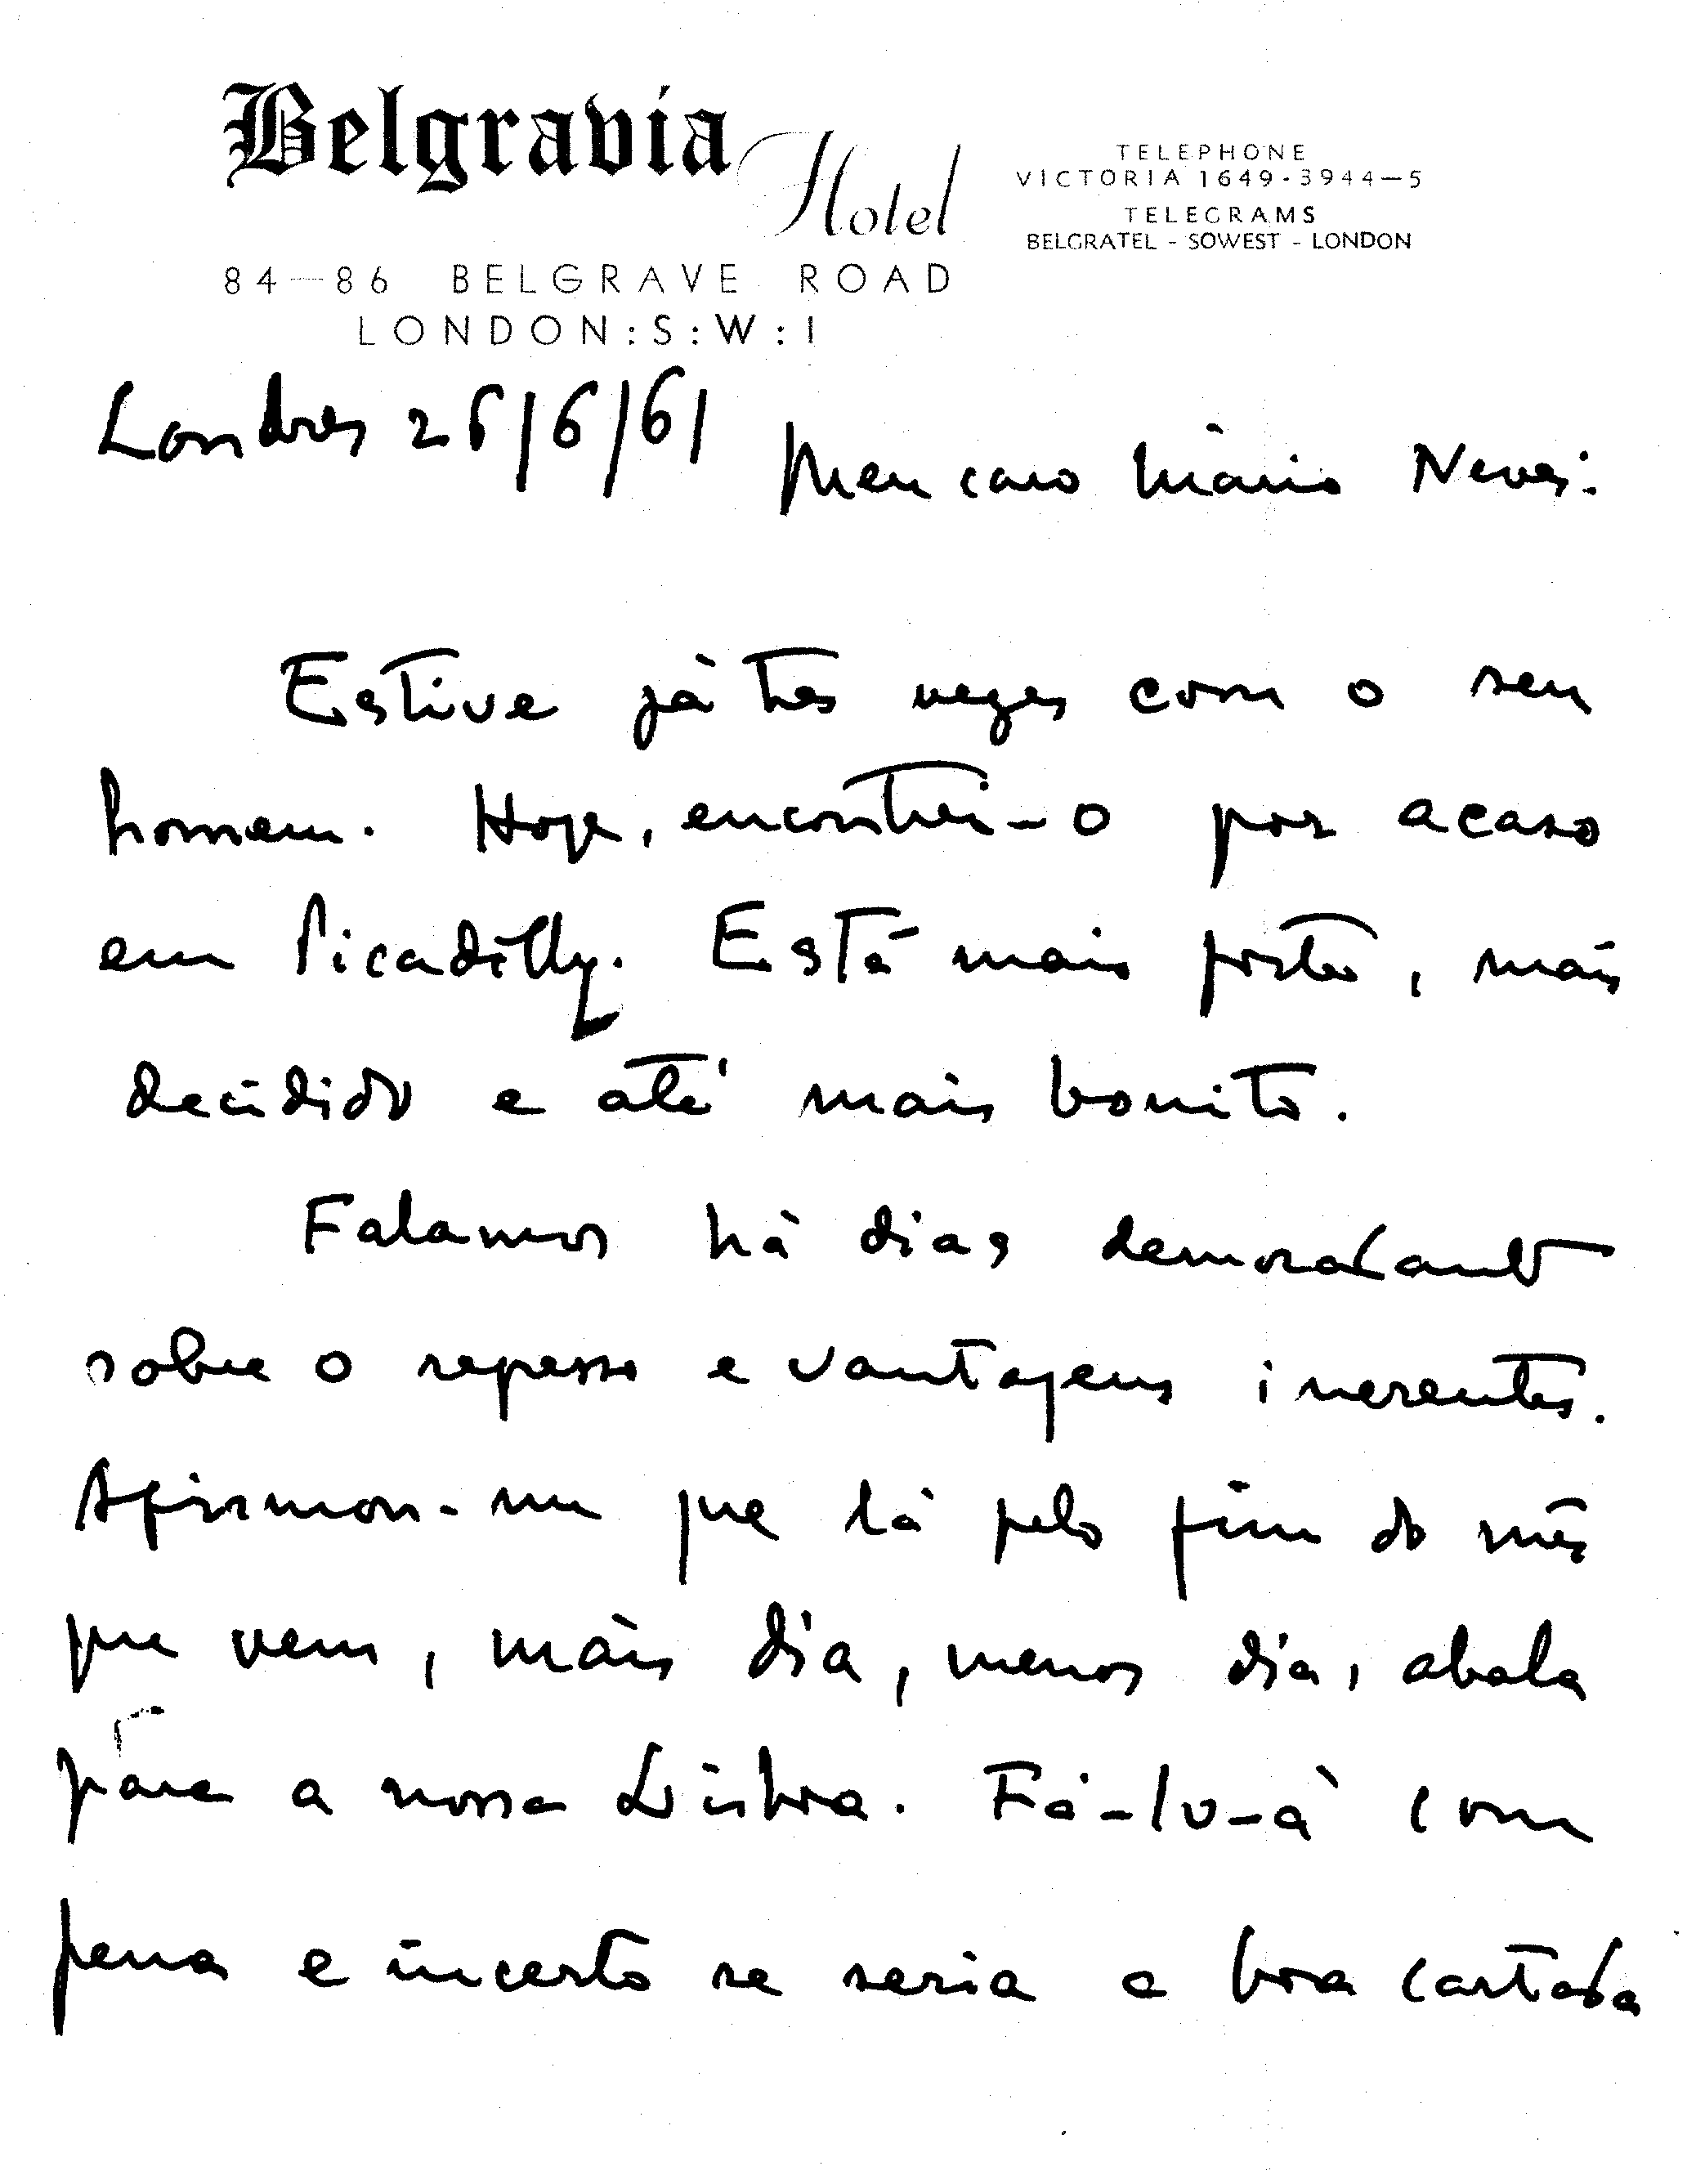 Belgravia Hotel
TELEPHONE
VICTORIA 1649·3944—5
TELEGRAMS
BELGRATEL - SOWEST - LONDON
84—86 BELGRAVE ROAD
LONDON:S:W:1
Londres 26/6/61 Meu caro Mário Neves:
Estive já tres vezes com o seu
homem. Hoje, encontrei-o por acaso
em Picadilly. Está mais forte, mais
decidido e até mais bonito.
Falamos há dias
sobre o regresso e vantagens inerentes.
Afirmou-me que lá pelo fim do mês
que vem, mais dia, menos dia, abala
para a nossa Lisboa. Fá-lo-á com
pena e incerto se seria a boa cartada